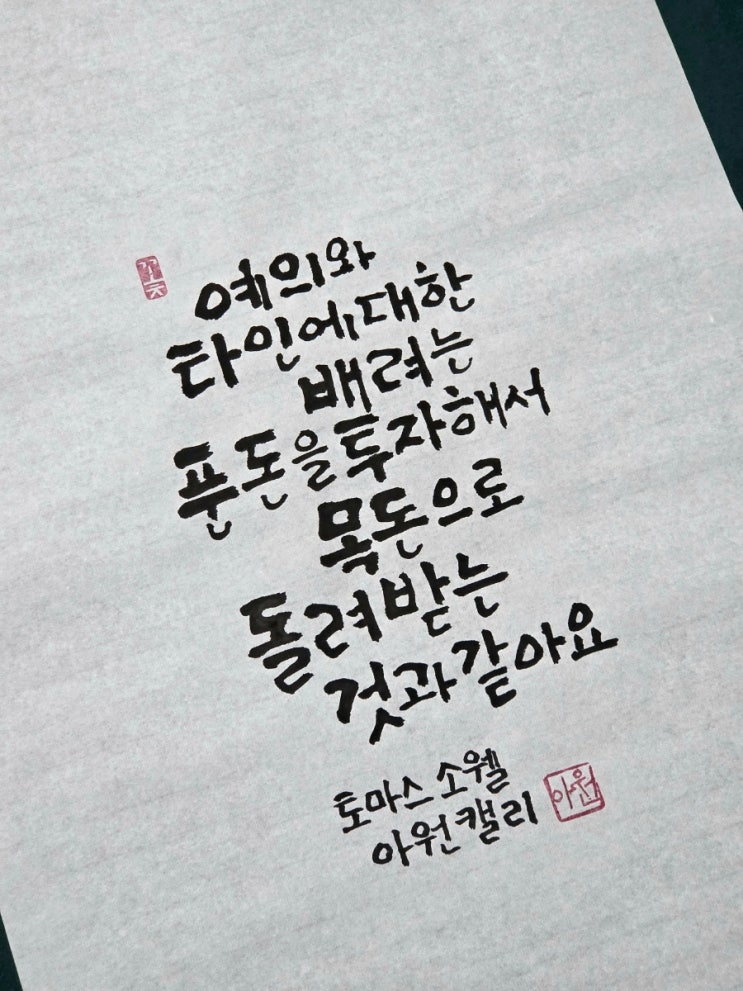 예의와
타인에대한
배려는
푼돈을투자해서
목돈으로
돌려받는
것과같아요
토마스 소웰
아원캘리
아원